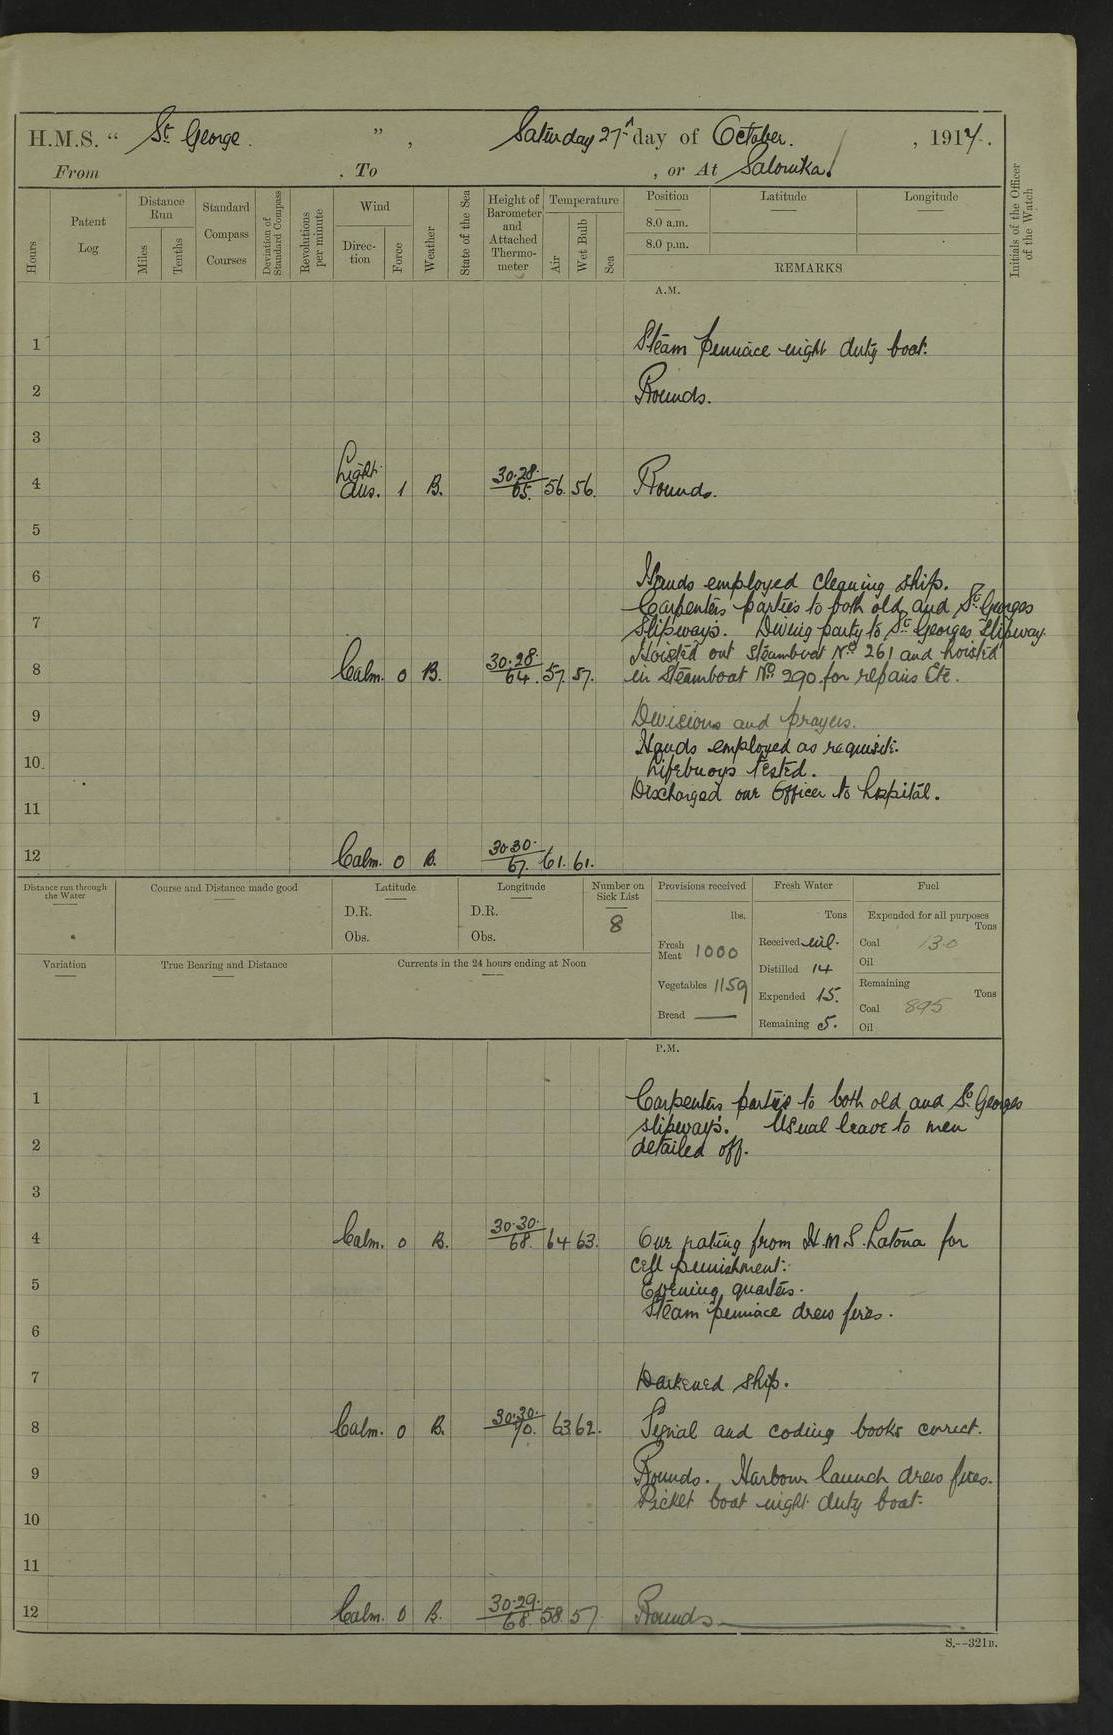 H.M.S. “ St. George. ” , Saturday 27th day of October. , 1917.
From , To , or At Salonika.
Hours
Patent Log
Distance Run
Miles
Tenths
Standard Compass Courses
Deviation of Standard Compass
Revolutions per minute
Wind
Direction
Force
Weather
State of the Sea
Height of Barometer and Attached Thermometer
Temperature
Air
Wet Bulb
Sea
Position
Latitude
Longitude
8.0 a.m.
8.0 p.m.
REMARKS
Initials of the Officer of the Watch
A.M.
1 Steam pinnace night duty boat.
2 Rounds.
3
4 Light airs. 1 B. 30.28. 65. 56. 56. Rounds.
5
6 Hands employed cleaning ship.
Carpenters parties to both old and St. Georges
7 slipways. Diving party to St. Georges slipway.
Hoisted out steamboat No. 261 and hoisted
8 Calm. 0 B. 30.28. 64. 57. 57. in steamboat No. 290 for repairs Etc.
9 Divisions and prayers.
Hands employed as requisite.
10 Lifebuoys tested.
Discharged one Officer to hospital.
11
12 Calm. 0 B. 30.30. 67. 61. 61.
Distance run through the Water
Course and Distance made good
Latitude
D.R.
Obs.
Longitude
D.R.
Obs.
Number on Sick List
8
Provisions received
lbs.
Fresh Meat 1000
Vegetables 1159
Bread —
Fresh Water
Tons
Received nil.
Distilled 14
Expended 15.
Remaining 5.
Fuel
Expended for all purposes
Tons
Coal 130
Oil
Remaining
Tons
Coal 895
Oil
Variation
True Bearing and Distance
Currents in the 24 hours ending at Noon
P.M.
1 Carpenters parties to both old and St. Georges
slipways. Usual leave to men
2 detailed off.
3
4 Calm. 0 B. 30.30. 68. 64 63. One rating from H.M.S. Latona for
cell punishment.
5 Evening quarters.
Steam pinnace drew fires.
6
7 Darkened ship.
8 Calm. 0 B. 30.30. 70. 63 62. Signal and coding books correct.
9 Rounds. Harbour launch drew fires.
Picket boat night duty boat.
10
11
12 Calm. 0 B. 30.29. 68. 58. 57 Rounds
S.—321B.